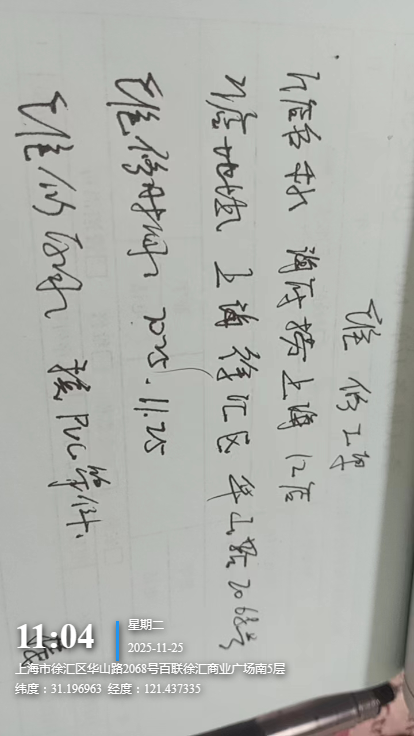 维修工单
门店名称 海底捞上海12店
门店地址 上海徐汇区华山路2068号
维修时间 2025.11.25
维修内容 换PVC管件.
11:04
星期二
2025-11-25
上海市徐汇区华山路2068号百联徐汇商业广场南5层
纬度：31.196963 经度：121.437335